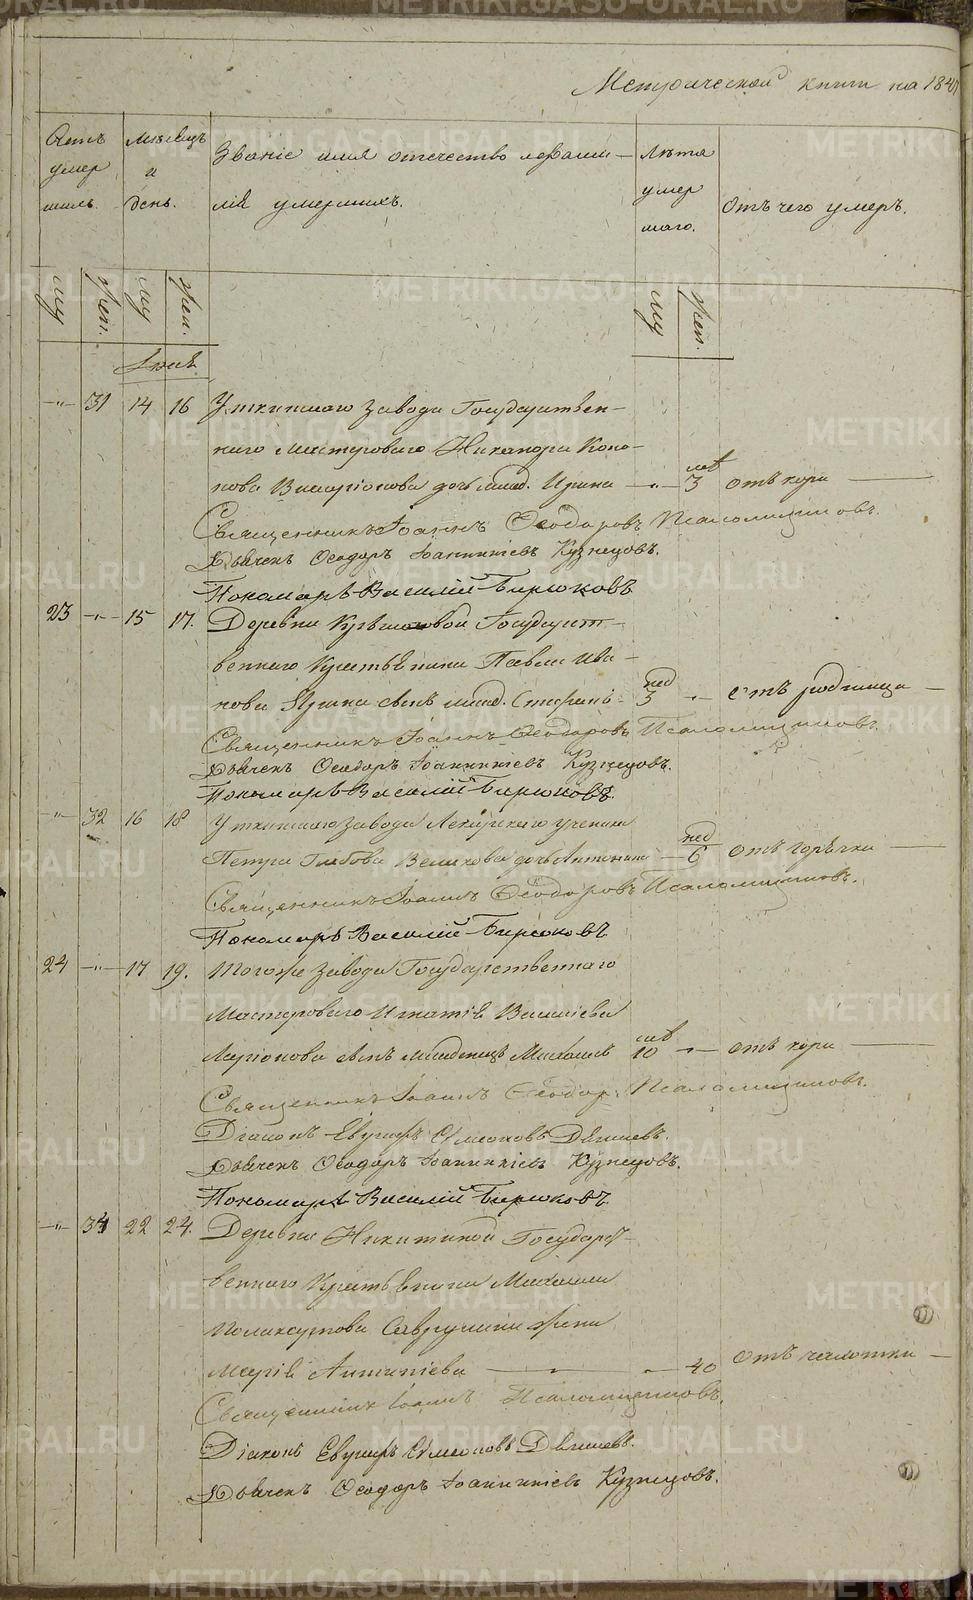 Метрической книги на 184
Счетъ умер шихъ.
мѣсяцъ и день.
Званіе имя отечество и фами-
лія умершихъ.
Лѣта умер шаго.
Отъ чего умеръ.
му жен. му жен. му жен.
31 14 16 Уткинскаго завода Государствен-
наго мастероваго Никандра Коно-
нова Виларіонова дочь млад. Ирина лѣт 3 отъ кори
Священникъ Іоаннъ Ѳеодоровъ Псаломщиковъ.
Дьячекъ Ѳеодоръ Іоанникіевъ Кузнецовъ.
Пономарь Василій Бирюковъ
23 15 17. Деревни Государст-
веннаго Крестьянина Павла Ива-
нова сынъ млад. Стефанъ нед 3 отъ родимца
Священникъ Іоаннъ Ѳеодоровъ Псаломщиковъ.
Дьячекъ Ѳеодоръ Іоанникіевъ Кузнецовъ.
Пономарь Василій Бирюковъ.
32 16 18 Уткинскаго завода Лекарскаго ученика
Петра Глѣбова дочь Антонина нед 6 отъ горячки
Священникъ Іоаннъ Ѳеодоровъ Псаломщиковъ.
Пономарь Василій Бирюковъ
24 17 19. Того же завода Государственнаго
Мастероваго Игнатія Васильева
Ларіонова сынъ младенецъ Михаилъ 10 отъ кори
Священникъ Іоаннъ Ѳеодор. Псаломщиковъ.
Діаконъ Евѳимъ Симеоновъ
Дьячекъ Ѳеодоръ Іоанникіевъ Кузнецовъ.
Пономарь Василій Бирюковъ.
22 24. Деревни Никитиной Государст-
веннаго Крестьянина Михаила
жена
Марія Антипіева 40 отъ чахотки
Священникъ Іоаннъ Псаломщиковъ.
Діаконъ Евѳимъ Симеоновъ
Дьячекъ Ѳеодоръ Іоанникіевъ Кузнецовъ.
METRIKI.GASO-URAL.RU